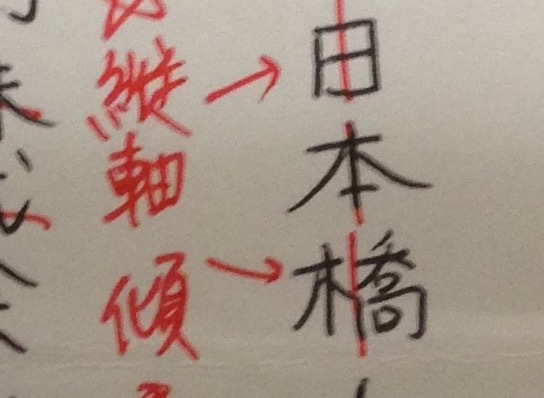 日本橋
縦軸傾